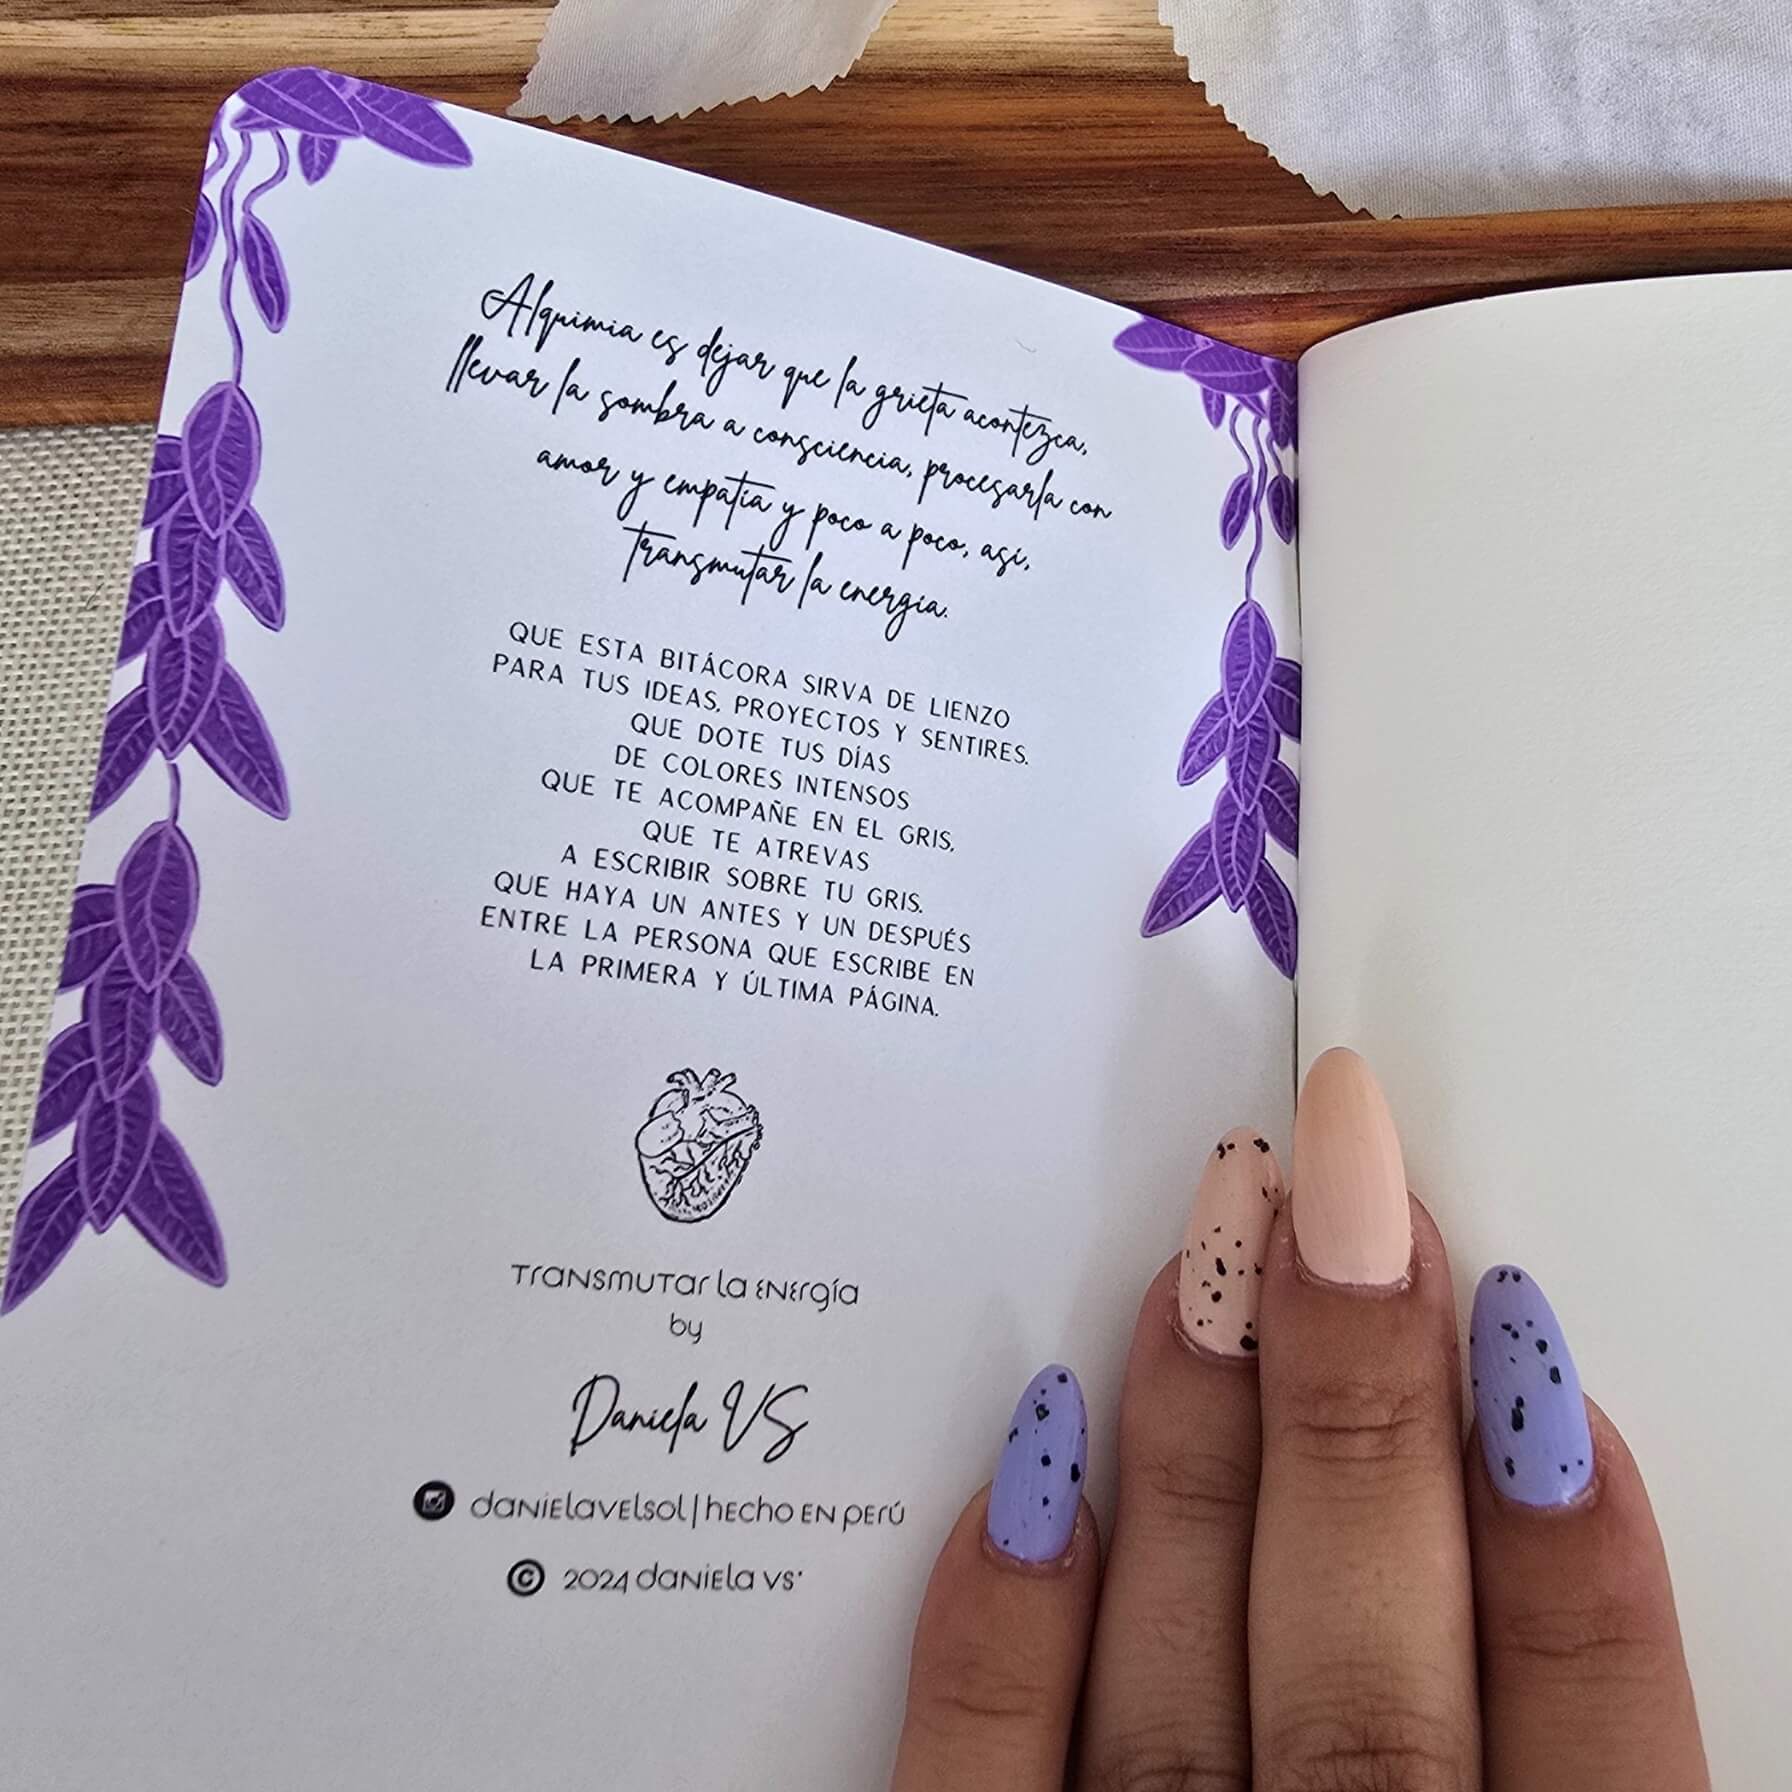 Alquimia es dejar que la grieta acontezca,
llevar la sombra a consciencia, procesarla con
amor y empatía y poco a poco, así,
transmutar la energía.
QUE ESTA BITÁCORA SIRVA DE LIENZO
PARA TUS IDEAS, PROYECTOS Y SENTIRES.
QUE DOTE TUS DÍAS
DE COLORES INTENSOS
QUE TE ACOMPAÑE EN EL GRIS,
QUE TE ATREVAS
A ESCRIBIR SOBRE TU GRIS.
QUE HAYA UN ANTES Y UN DESPUÉS
ENTRE LA PERSONA QUE ESCRIBE EN
LA PRIMERA Y ÚLTIMA PÁGINA.
Transmutar la Energía
by
Daniela VS
danielavelsol | hecho en Perú
© 2024 daniela vs·